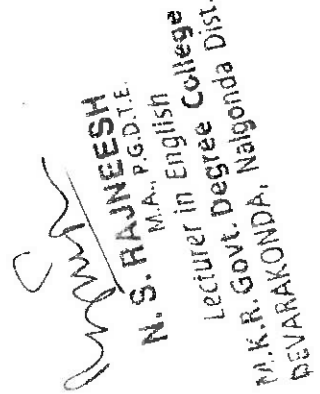 N. S. RAJNEESH
M.A., P.G.D.T.E.
Lecturer in English
M.K.R. Govt. Degree College
DEVARAKONDA, Nalgonda Dist.